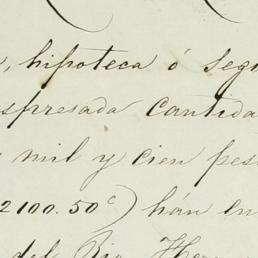 , hipoteca ó segu
spresada cantida
mil y cien pes
2100.50c) hán en
del Rio Her